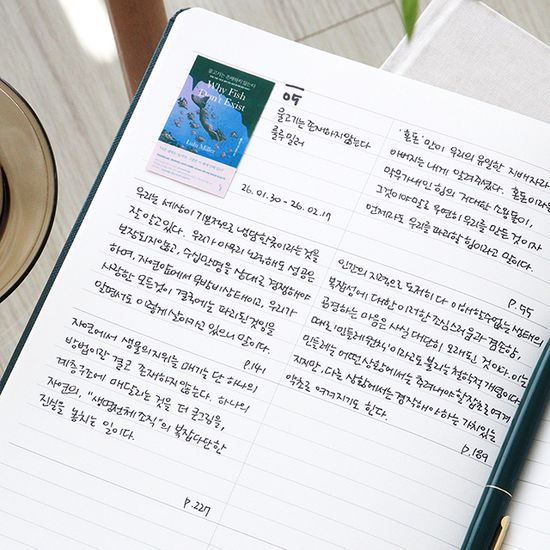 물고기는 존재하지 않는다
Why Fish
Don't Exist
Lulu Miller
05
물고기는 존재하지 않는다
룰루 밀러
26.01.30 - 26.02.17
우리는 세상이 기본적으로 냉담한 곳이라는 것을
잘 알고 있다. 우리가 아무리 노력해도 성공은
보장되지 않고, 수십만명을 상대로 경쟁해야
하며, 자연 앞에서 무방비 상태이고, 우리가
사랑한 모든것이 결국에는 파괴될 것임을
알면서도 이렇게 살아가고 있으니 말이다.
p.141
자연에서 생물의 지위를 매기는 단 하나의
방법이란 결코 존재하지 않는다. 하나의
계층구조에 매달리는 것은 더 큰 그림을,
자연의, "생명 전체 조직"의 복잡다단한
진실을 놓치는 일이다.
p.227
'혼돈'만이 우리의 유일한 지배자라고
아버지는 내게 알려주었다. 혼돈이라는
막무가내인 힘의 거대한 소용돌이,
그것이야말로 우연히 우리를 만든 것이자
언제라도 우리를 파괴할 힘이라고 말이다.
p.55
인간의 지력으로 도저히 다 이해할 수 없는 생태의
복잡성에 대한 이러한 조심스러움과 겸손함,
공경하는 마음은 사실 대단히 오래된 것이다. 이는
때로 '민들레 원칙'이라고도 불리는 철학적 개념이다.
민들레는 어떤 상황에서는 추려내야 할 잡초로 여겨
지지만, 다른 상황에서는 경작해야 하는 가치 있는
약초로 여겨지기도 한다.
p.189